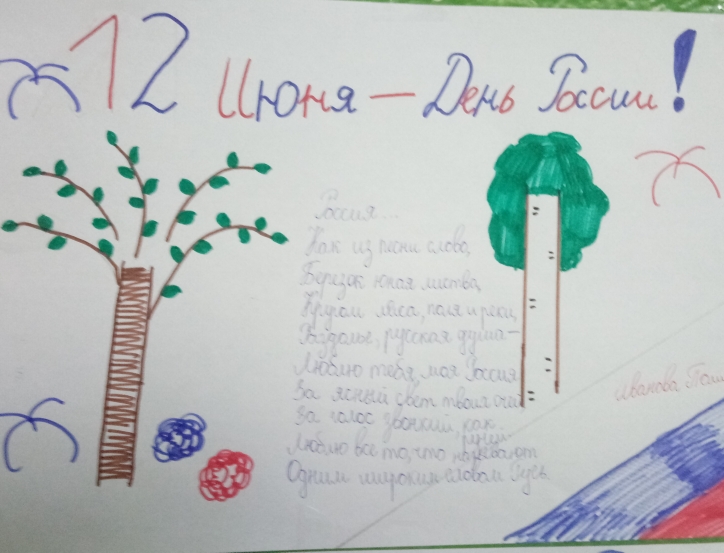 12 Июня — День России!
Россия...
Как из песни слово,
Березок юная листва,
Кругом леса, поля и реки,
Раздолье, русская душа —
Люблю тебя, моя Россия,
За ясный свет твоих очей
За голос звонкий, как
ручей
Люблю все то, что называют
Одним широким словом Русь
Иванова